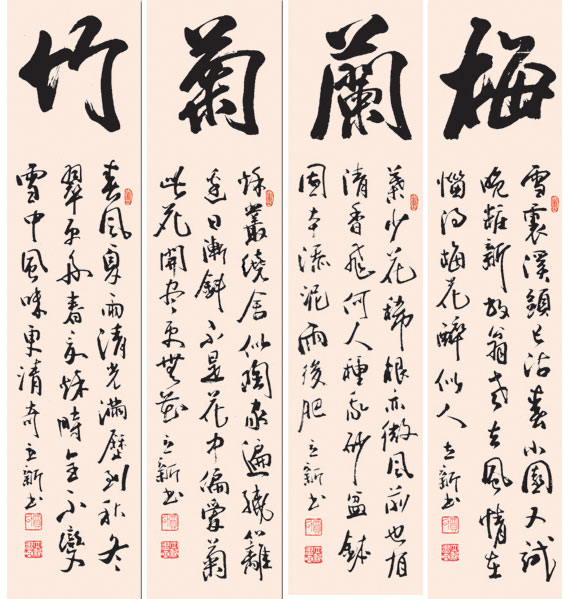 梅
雪裏溪頭已沾春小園又試
晚粧新放翁老去風情在
惱得梅花醉似人 立新書
蘭
葉少花稀根亦微風前也有
清香飛何人種我砂盆缽
固本添泥雨後肥 立新書
菊
秋叢繞舍似陶家遍繞籬
邊日漸斜不是花中偏愛菊
此花開盡更無花 立新書
竹
春風夏雨清光滿歷到秋冬
翠更春秋時全不變
雪中風味更清奇 立新書